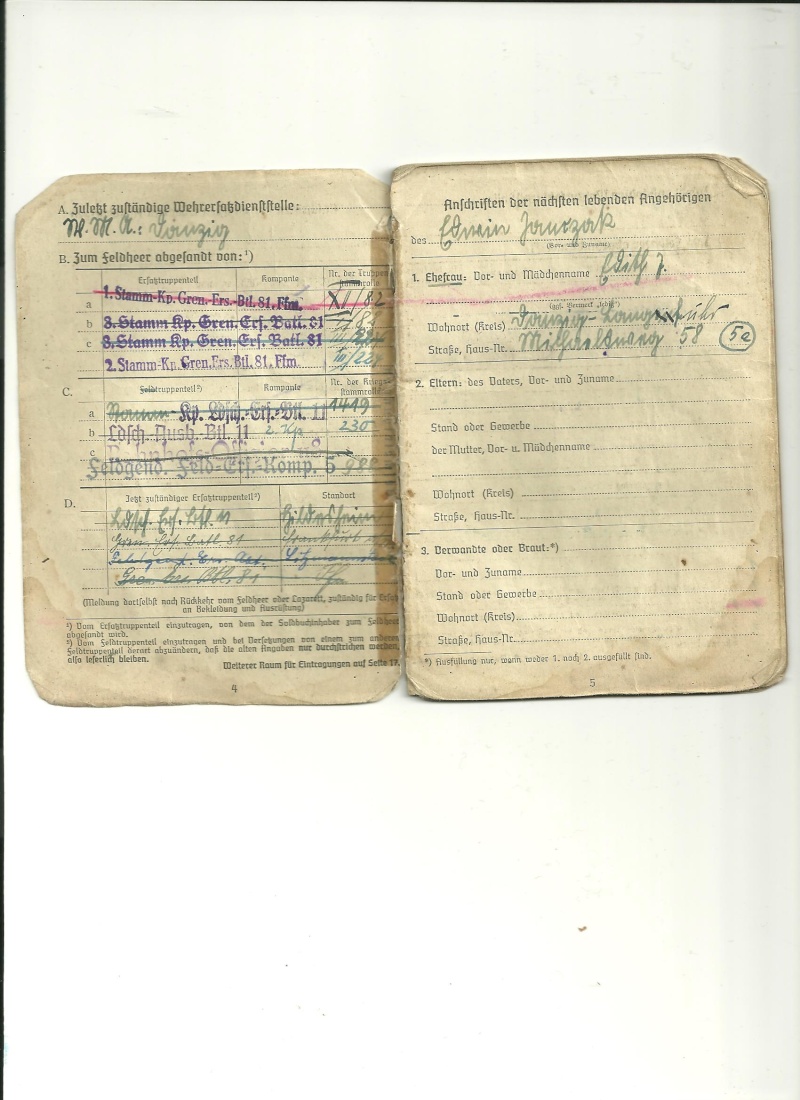 A. Zuletzt zuständige Wehrersatzdienststelle:
W. M. A.: Danzig
B. Zum Feldheer abgesandt von:¹)
Ersatztruppenteil Kompanie Nr. der Truppenstammrolle
a 1. Stamm-Kp. Gren.-Ers.-Btl. 81. Ffm. XII/82
b 3. Stamm Kp. Gren. Ers. Batl. 81
c 3. Stamm Kp. Gren. Ers. Batl. 81
2. Stamm-Kp. Gren. Ers. Btl. 81. Ffm. III/22
C. Feldtruppenteil²) Kompanie Nr. der Kriegsstammrolle
a Stamm-Kp. Ldsch.-Ers.-Btl. 11 1419
b Ldsch. Ausb. Btl. 11 2. Kp. 230
c
Feldgend. Feld-Ers.-Komp. 5
D. Jetzt zuständiger Ersatztruppenteil²) Standort
Ldsch. Ers. Btl. 11 Hildesheim
Gren. Ers. Batl. 81 Frankfurt
Feldgend. Ers. Abt. Litzmannstadt
Gren. Ers. Btl. 81 Ffm.
(Meldung dortselbst nach Rückkehr vom Feldheer oder Lazarett, zuständig für Ersatz
an Bekleidung und Ausrüstung)
¹) Vom Ersatztruppenteil einzutragen, von dem der Soldbuchinhaber zum Feldheer
abgesandt wird.
²) Vom Feldtruppenteil einzutragen und bei Versetzungen von einem zum anderen
Feldtruppenteil derart abzuändern, daß die alten Angaben nur durchstrichen werden,
also leserlich bleiben.
Weiterer Raum für Eintragungen auf Seite 17.
4
Anschriften der nächsten lebenden Angehörigen
des Edwin Janczak
(Vor- und Zuname)
1. Ehefrau: Vor- und Mädchenname Edith J.
(ggf. Vermerk „ledig“)
Wohnort (Kreis) Danzig-Langfuhr
Straße, Haus-Nr. 58 5a
2. Eltern: des Vaters, Vor- und Zuname
Stand oder Gewerbe
der Mutter, Vor- u. Mädchenname
Wohnort (Kreis)
Straße, Haus-Nr.
3. Verwandte oder Braut:*)
Vor- und Zuname
Stand oder Gewerbe
Wohnort (Kreis)
Straße, Haus-Nr.
*) Ausfüllung nur, wenn weder 1. noch 2. ausgefüllt sind.
5